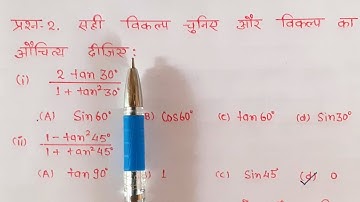 प्रश्न-2. सही विकल्प चुनिए और विकल्प का
औचित्य दीजिए:
(i) 2 tan 30° / 1 + tan² 30°
(A) Sin 60° (B) Cos 60° (C) tan 60° (d) Sin 30°
(ii) 1 - tan² 45° / 1 + tan² 45°
(A) tan 90° (B) 1 (C) Sin 45° (d) 0